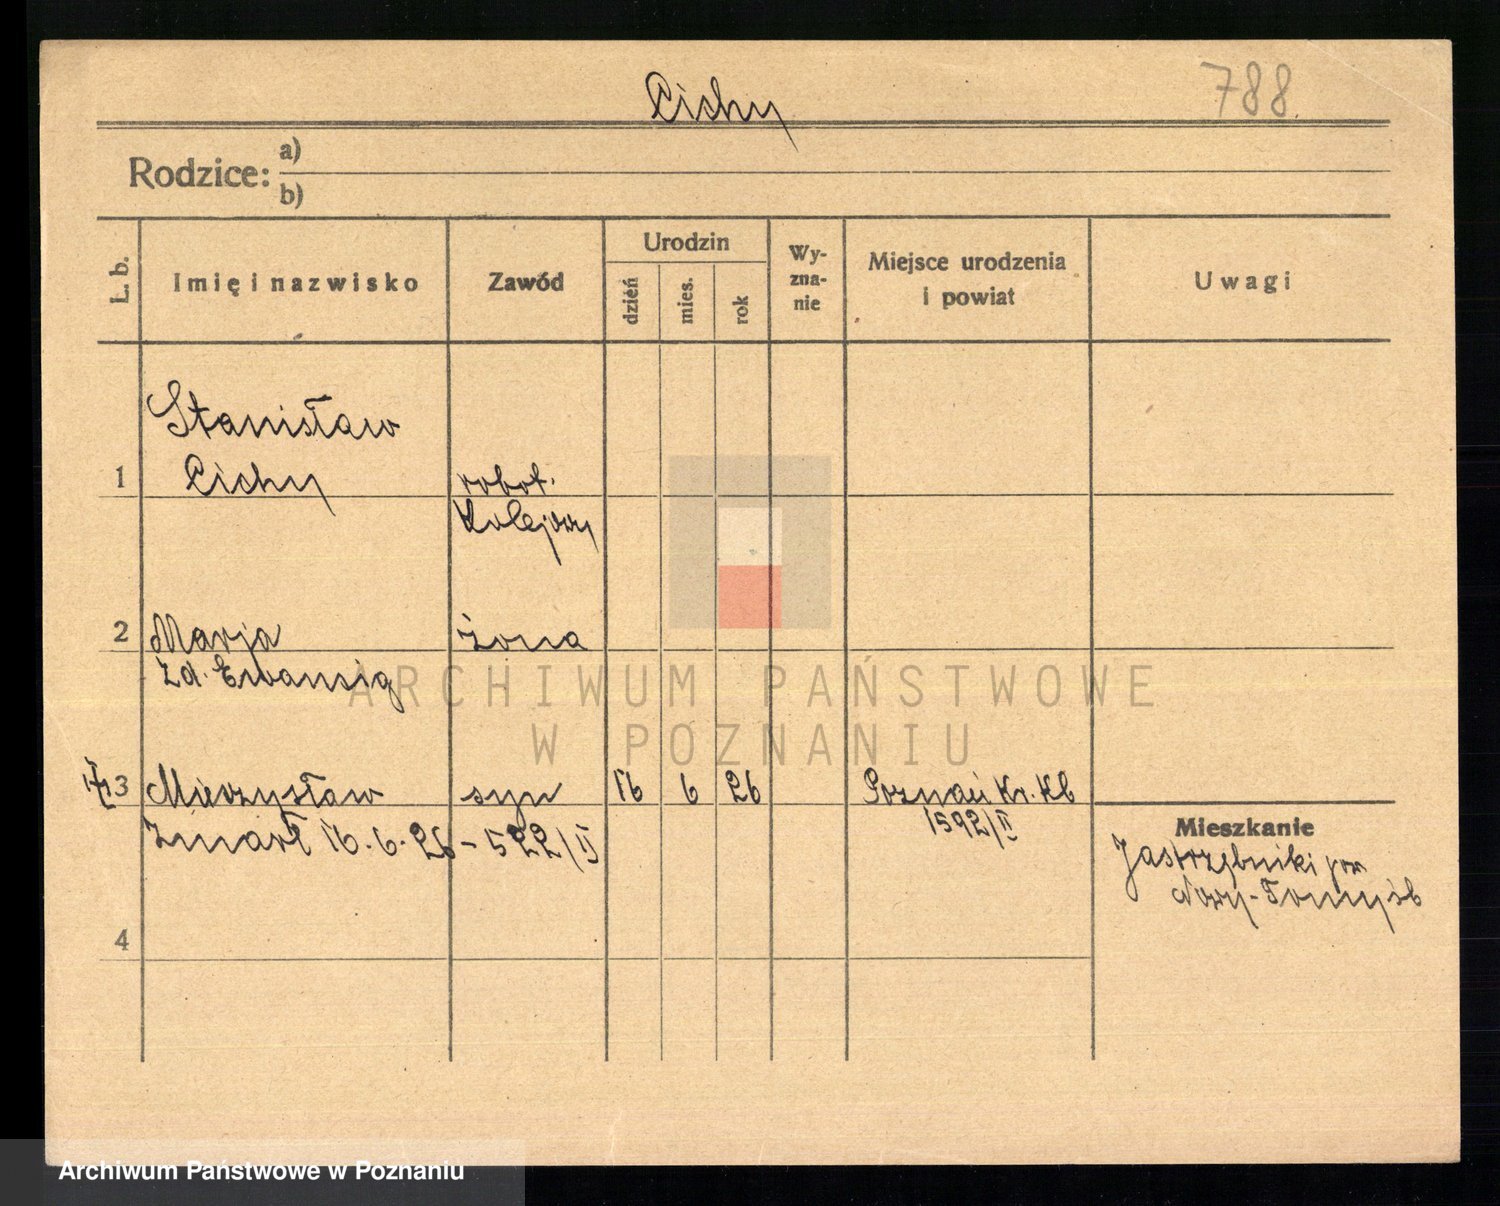 788
Cichy
Rodzice: a)
b)
L. b.
Imię i nazwisko
Zawód
Urodzin
dzień
mies.
rok
Wy-
zna-
nie
Miejsce urodzenia
i powiat
Uwagi
Stanisław
1 Cichy robot.
kolejowy
2 Marja żona
zd. Ewansig
3 Mieczysław syn 16 6 26 Poznań Kr. Kb
1592/II
zmarł 16.6.26 - 522/II
Mieszkanie
Jastrzębniki pow
Nowy-Tomyśl
4
ARCHIWUM PAŃSTWOWE
W POZNANIU
Archiwum Państwowe w Poznaniu